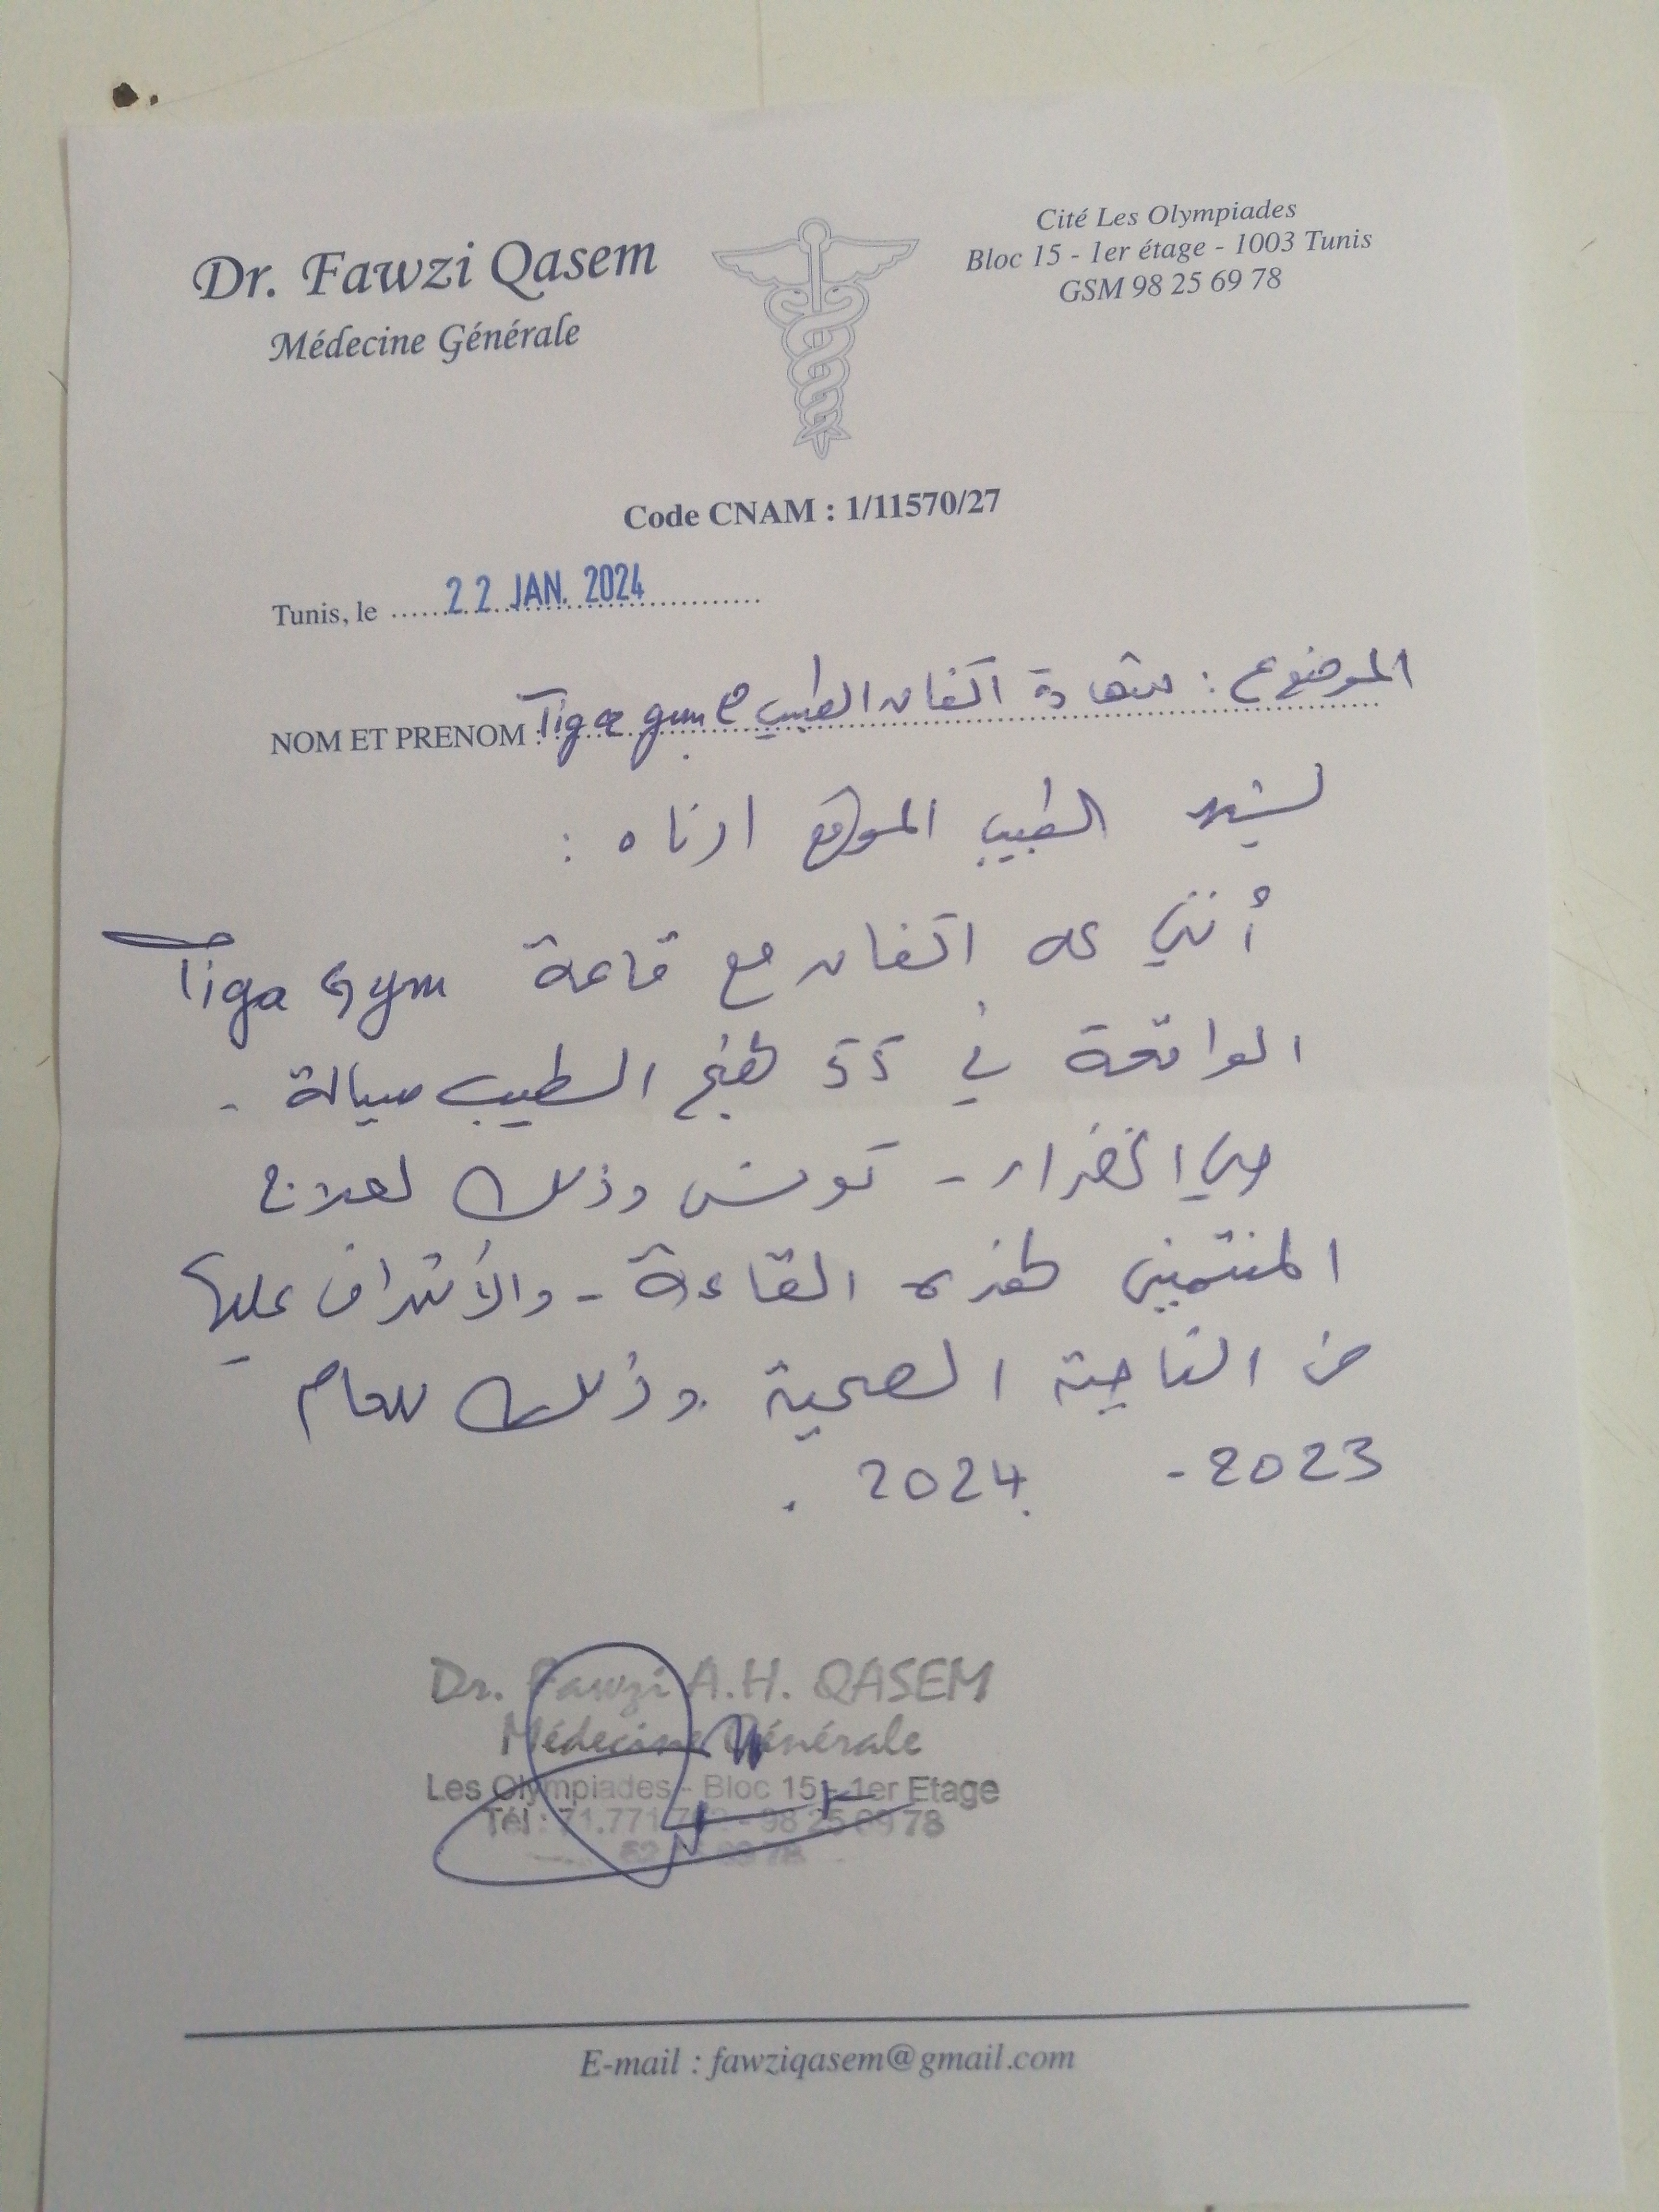 Dr. Fawzi Qasem
Médecine Générale
Cité Les Olympiades
Bloc 15 - 1er étage - 1003 Tunis
GSM 98 25 69 78
Code CNAM : 1/11570/27
Tunis, le 22 JAN. 2024
الموضوع : شهادة اتفاق الطبيب مع
NOM ET PRENOM : Tiga gym
يشهد الطبيب الموقع ادناه :
أنني على اتفاق مع قاعة Tiga Gym
الواقعة في 55 نهج الطيب سيالة -
حي الخضراء - تونس وذلك لعلاج
المنتمين لهذه القاعة - والأشراف عليها
من الناحية الصحية وذلك للعام
2023 - 2024 .
Dr. Fawzi A.H. QASEM
Médecine Générale
Les Olympiades - Bloc 15 - 1er Etage
Tél : 71.771 - 98 25 69 78
E-mail : fawziqasem@gmail.com